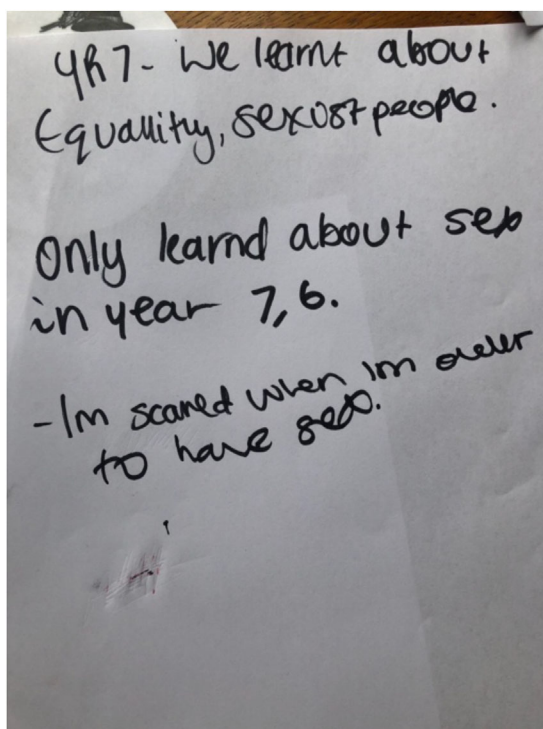 YR7- We learnt about
Equallity, sexust people.
Only learnd about sex
in year 7,6.
-Im scared when im older
to have sex.